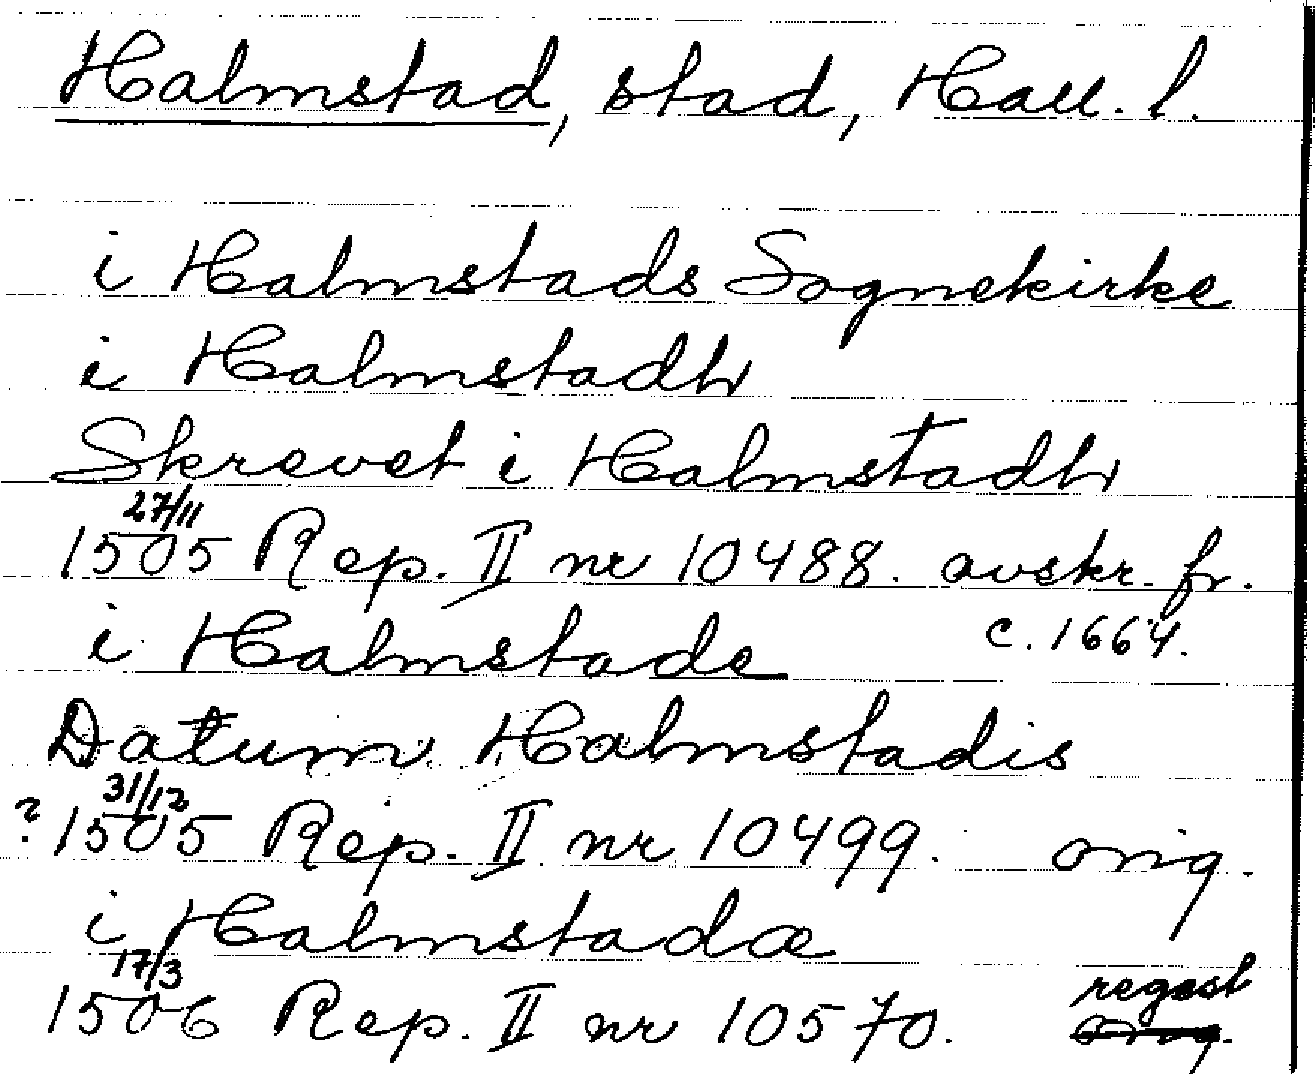 Halmstad, stad, Hall. l.
i Halmstads Sognekirke
i Halmstadh
Skrevet i Halmstadh
27/11
1505 Rep. II nr 10488. avskr. fr.
c. 1664.
i Halmstade
Datum Halmstadis
31/12
? 1505 Rep. II nr 10499. orig.
i Halmstadæ
17/3
1506 Rep. II nr 10570. regest
orig.